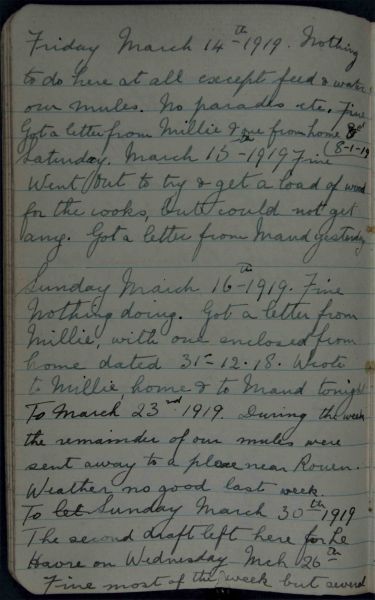 Friday March 14th 1919. Nothing
to do here at all except feed & water
our mules. No parades etc. Fine
Got a letter from Millie & one from home
(8-1-19
Saturday, March 15th 1919 Fine
Went out to try & get a load of wood
for the cooks, but could not get
any. Got a letter from Maud yesterday
Sunday March 16th 1919. Fine
Nothing doing. Got a letter from
Millie, with one enclosed from
home dated 31-12-18. Wrote
to Millie, home & to Maud tonight
To March 23rd 1919. During the week
the remainder of our mules were
sent away to a place near Rouen.
Weather no good last week.
To Sunday March 30th 1919
The second draft left here for Le
Havre on Wednesday Mch 26th
Fine most of the week but